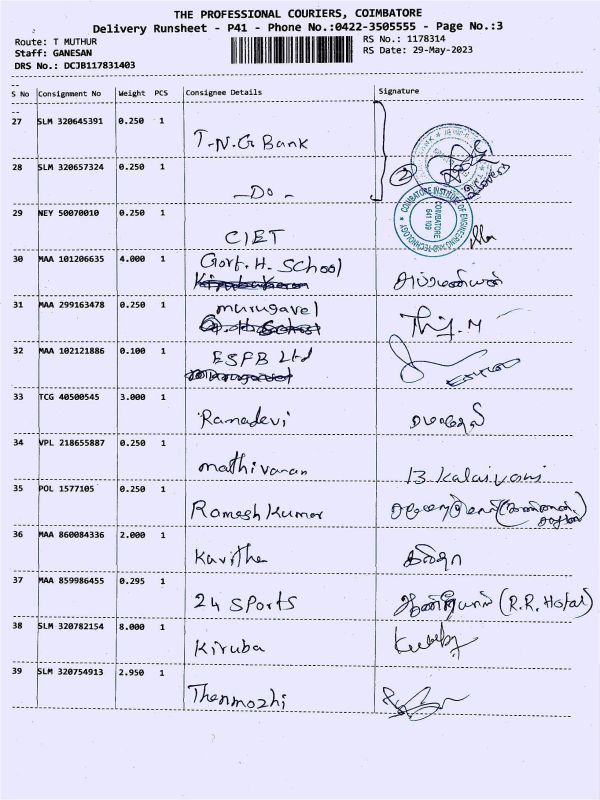 THE PROFESSIONAL COURIERS, COIMBATORE
Delivery Runsheet - P41 - Phone No.:0422-3505555 - Page No.:3
Route: T MUTHUR
RS No.: 1178314
Staff: GANESAN
RS Date: 29-May-2023
DRS No.: DCJB117831403
S No Consignment No Weight PCS Consignee Details Signature
27 SLM 320645391 0.250 1
T.N.G Bank
28 SLM 320657324 0.250 1
- Do -
2
29 NEY 50070010 0.250 1
CIET
COIMBATORE INSTITUTE OF ENGINEERING AND TECHNOLOGY
COIMBATORE
641 109
30 MAA 101206635 4.000 1
Govt. H. School
31 MAA 299163478 0.250 1
murugavel
32 MAA 102121886 0.100 1
ESFB Ltd
33 TCG 40500545 3.000 1
Ramadevi
34 VPL 218655887 0.250 1
mathivanan 13 Kalaivani
35 POL 1577105 0.250 1
Ramesh Kumar
36 MAA 860084336 2.000 1
Kavitha கவிதா
37 MAA 859986455 0.295 1
24 Sports (R.R. Hotal)
38 SLM 320782154 8.000 1
Kiruba
39 SLM 320754913 2.950 1
Thenmozhi